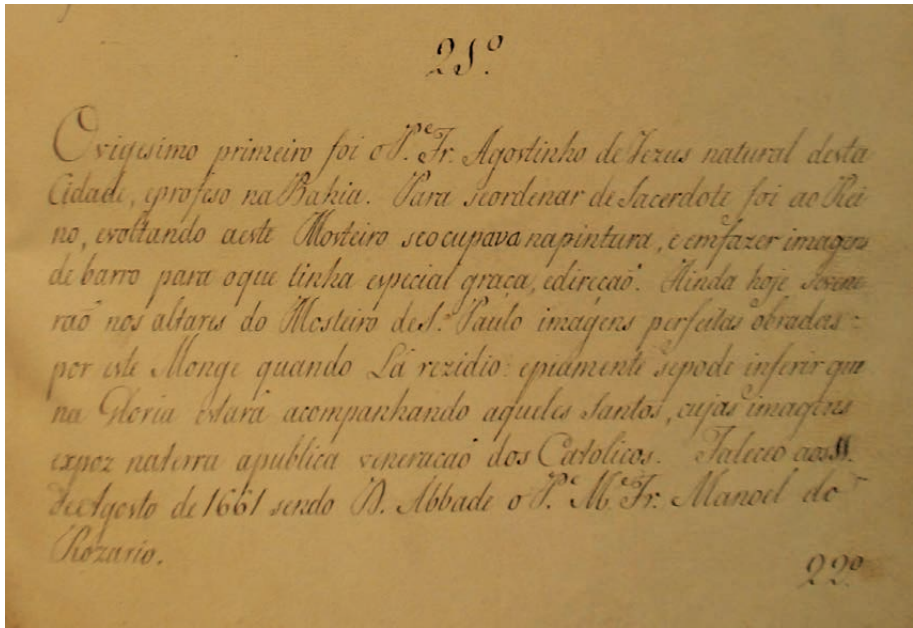 21º
O vigesimo primeiro foi o P.e Fr. Agostinho de Jezus natural desta
Cidade, eprofeso na Bahia. Para seordenar de Sacerdote foi ao Rei
no, evoltando aeste Mosteiro seocupava napintura, e emfazer imagens
de barro para oque tinha especial graça, edirecaõ. Ainda hoje sevene
raõ nos altares do Mosteiro de S. Paulo imagens perfeitas obradas
por este Monge quando Lá rezidio: epiamente sepode inferir que
na Gloria estará acompanhando aqueles Santos, cujas imagens
expoz naterra apublica veneracaõ dos Catolicos. Faleceo aos
de Agosto de 1661 sendo D. Abbade o P. M. Fr. Manoel do
Rozario.
22º